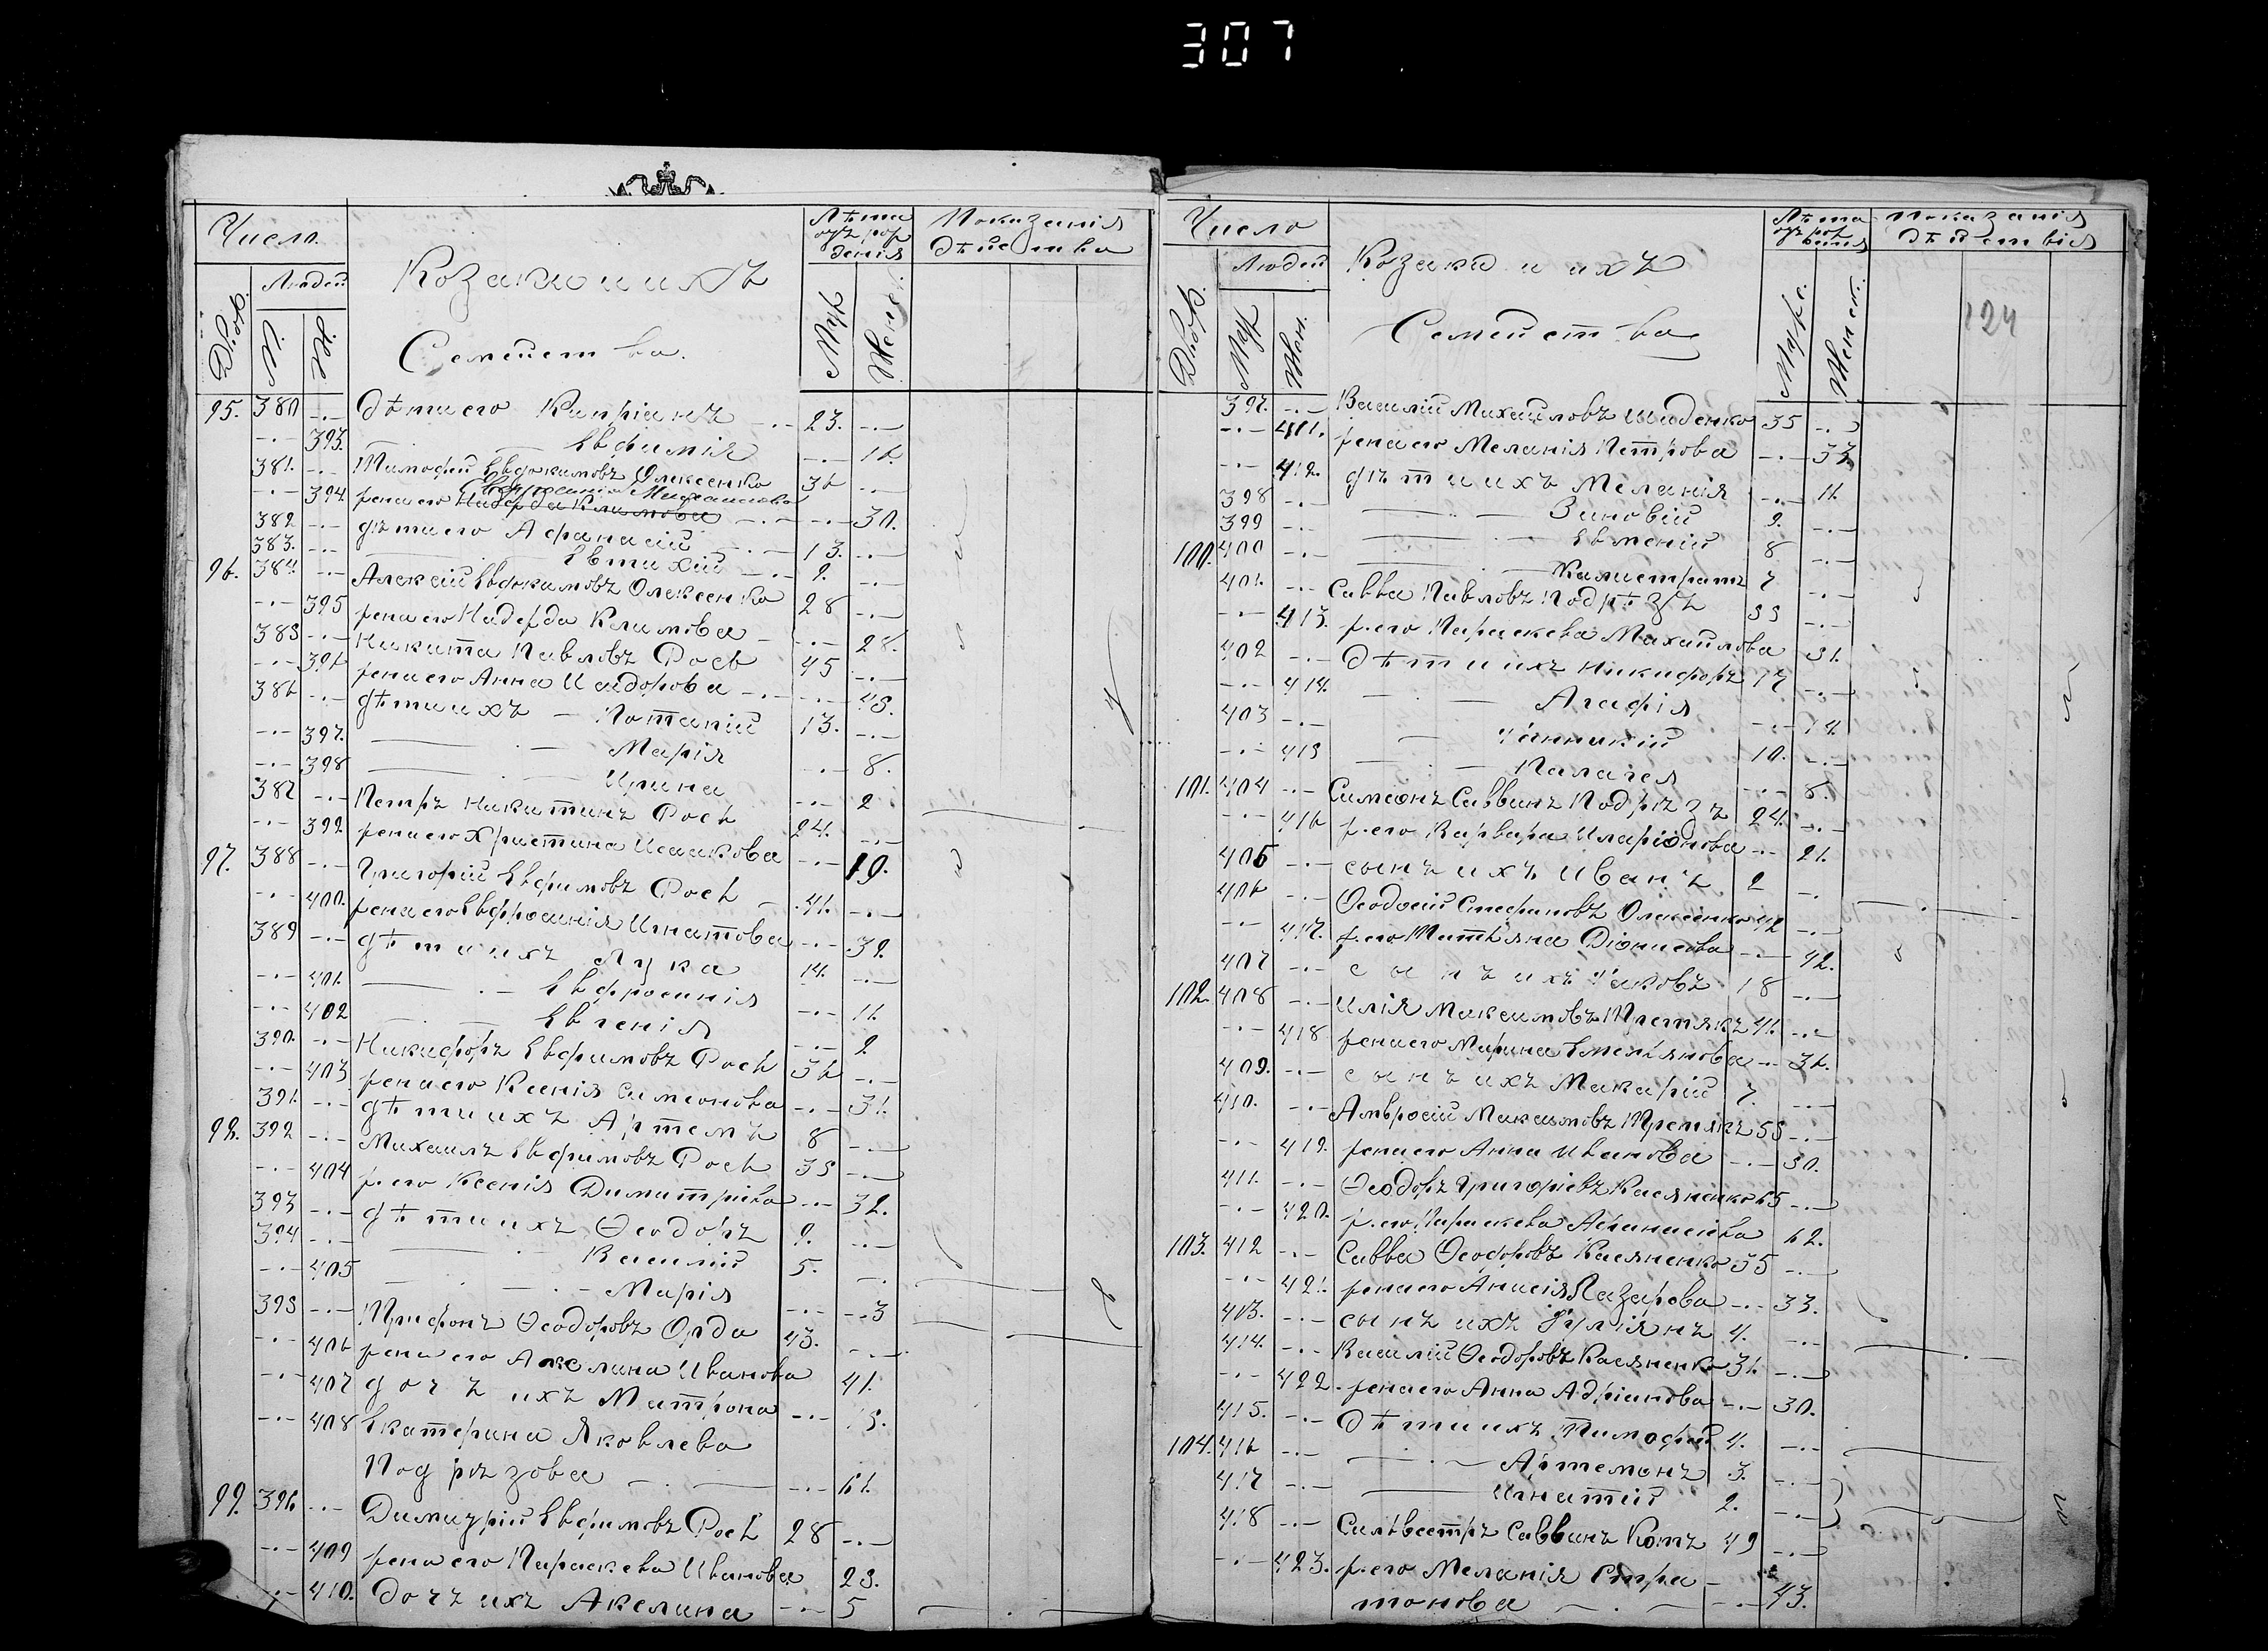 307
Число.
Людей
Дворов.
Козаки и ихъ
Семейства.
Лѣта
отъ рож
денія
Муж
Женск.
Показанія
дѣйства
95. 380 -.- дѣти его Кипріанъ -.- 23. -.-
-.- 393. Евфимія -.- 16.
381. -.- Тимофей Евдокимовъ Олексенко 36 -.-
-.- 394. жена его Надежда Климова -.- 30.
382 -.- дѣти его Афанасій 13. -.-
383. -.- Евтихій -.- 9. -.-
96. 384. -.- Алексій Евдокимовъ Олексенко 28 -.-
-.- 395 жена его Надежда Климова -.- 28.
385 -.- Никита Павловъ Рось 45 -.-
-.- 396 жена его Анна Исидорова -.- 45.
386 -.- дѣти ихъ - Потапій 13. -.-
-.- 397. Марія -.- 8.
-.- 398 Ирина -.- 2
387 -.- Петръ Никитинъ Рось 24. -.-
-.- 399 жена его Христина Исаакова -.- 19.
97. 388 -.- Григорій Евфимовъ Рось 41. -.-
-.- 400. жена его Евфросинія Игнатова -.- 39.
389 -.- дѣти ихъ Лука 14. -.-
-.- 401. Евфросинія -.- 11.
-.- 402 Евгенія -.- 9
390. -.- Никифоръ Евфимовъ Рось 36 -.-
-.- 403 жена его Ксенія Симеонова -.- 31.
391. -.- дѣти ихъ Артемъ 8 -.-
98. 392 -.- Михаилъ Евфимовъ Рось 35 -.-
-.- 404 ж. его Ксенія Димитріева -.- 32.
393 -.- дѣти ихъ Ѳеодоръ 9. -.-
394 -.- Василій 5. -.-
-.- 405 Марія -.- 3
395 -.- Трифонъ Ѳеодоровъ Орда 43. -.-
-.- 406 жена его Акелина Иванова 41.
-.- 407 дочь ихъ Матрона -.- 15.
-.- 408 Екатерина Яковлева
Подрѣзова -.- 61.
99. 396 -.- Димитрій Евфимовъ Рось 28 -.-
-.- 409 жена его Параскева Иванова 25.
-.- 410. дочь ихъ Акелина -.- 5
Число
Людей
Дворов
Муж
Жен.
Козаки и ихъ
Семейства
Лѣта
отъ рож
денія
Муж.
Женск.
Показанія
дѣйствія
124
397. -.- Василій Михайловъ Шиденко 35 -.-
-.- 411. жена его Меланія Петрова -.- 33
-.- 412. дѣти ихъ Меланія -.- 11.
398 -.- Зиновій 9. -.-
399 -.- Евменій 8 -.-
100. 400 -.- Калистратъ 7 -.-
401. -.- Савва Павловъ Подрѣзъ 55 -.-
-.- 413. ж. его Параскева Михайлова 51.
402 -.- дѣти ихъ Никифоръ 17 -.-
-.- 414. Агафія -.- 14.
403 -.- Іанникій 10. -.-
-.- 415 Палагея -.- 8.
101. 404 -.- Симеонъ Саввинъ Подрѣзъ 24. -.-
-.- 416 ж. его Варвара Иларіонова -.- 21.
405 -.- сынъ ихъ Иванъ 2 -.-
406 -.- Ѳеодосій Стефановъ Олексенко 42 -.-
-.- 417. ж. его Татьяна Діонисова -.- 42.
407 -.- сынъ ихъ Іаковъ 18 -.-
102. 408 -.- Илія Максимовъ Третякъ 41. -.-
-.- 418 жена его Марина Емельянова -.- 36.
409. -.- сынъ ихъ Макарій 7. -.-
410. -.- Амвросій Максимовъ Третякъ 55 -.-
-.- 419. жена его Анна Иванова -.- 50.
411. -.- Ѳеодоръ Григоріевъ Касяненко 65 -.-
-.- 420. ж. его Параскева Афанасіева 62.
103. 412 -.- Савва Ѳеодоровъ Касяненко 35 -.-
-.- 421. жена его Анисія Лазарева -.- 33.
413. -.- сынъ ихъ Іуліянъ 4. -.-
414. -.- Василій Ѳеодоровъ Касяненко 31. -.-
-.- 422. жена его Анна Адріанова -.- 30.
415. -.- дѣти ихъ Тимофей 4. -.-
104. 416 -.- Артемонъ 3. -.-
417 -.- Игнатій 2. -.-
418 -.- Сильвестръ Саввинъ Котъ 49 -.-
-.- 423. ж. его Меланія Стра
тонова -.- 43.